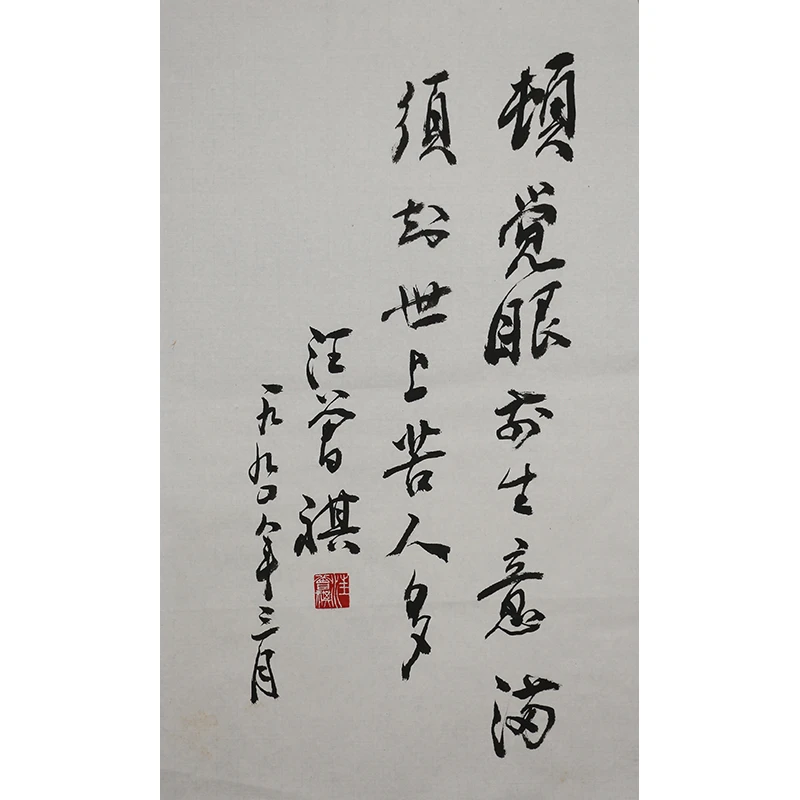 頓覺眼前生意滿
須知世上苦人多
汪曾祺
一九九〇年三月
汪曾祺